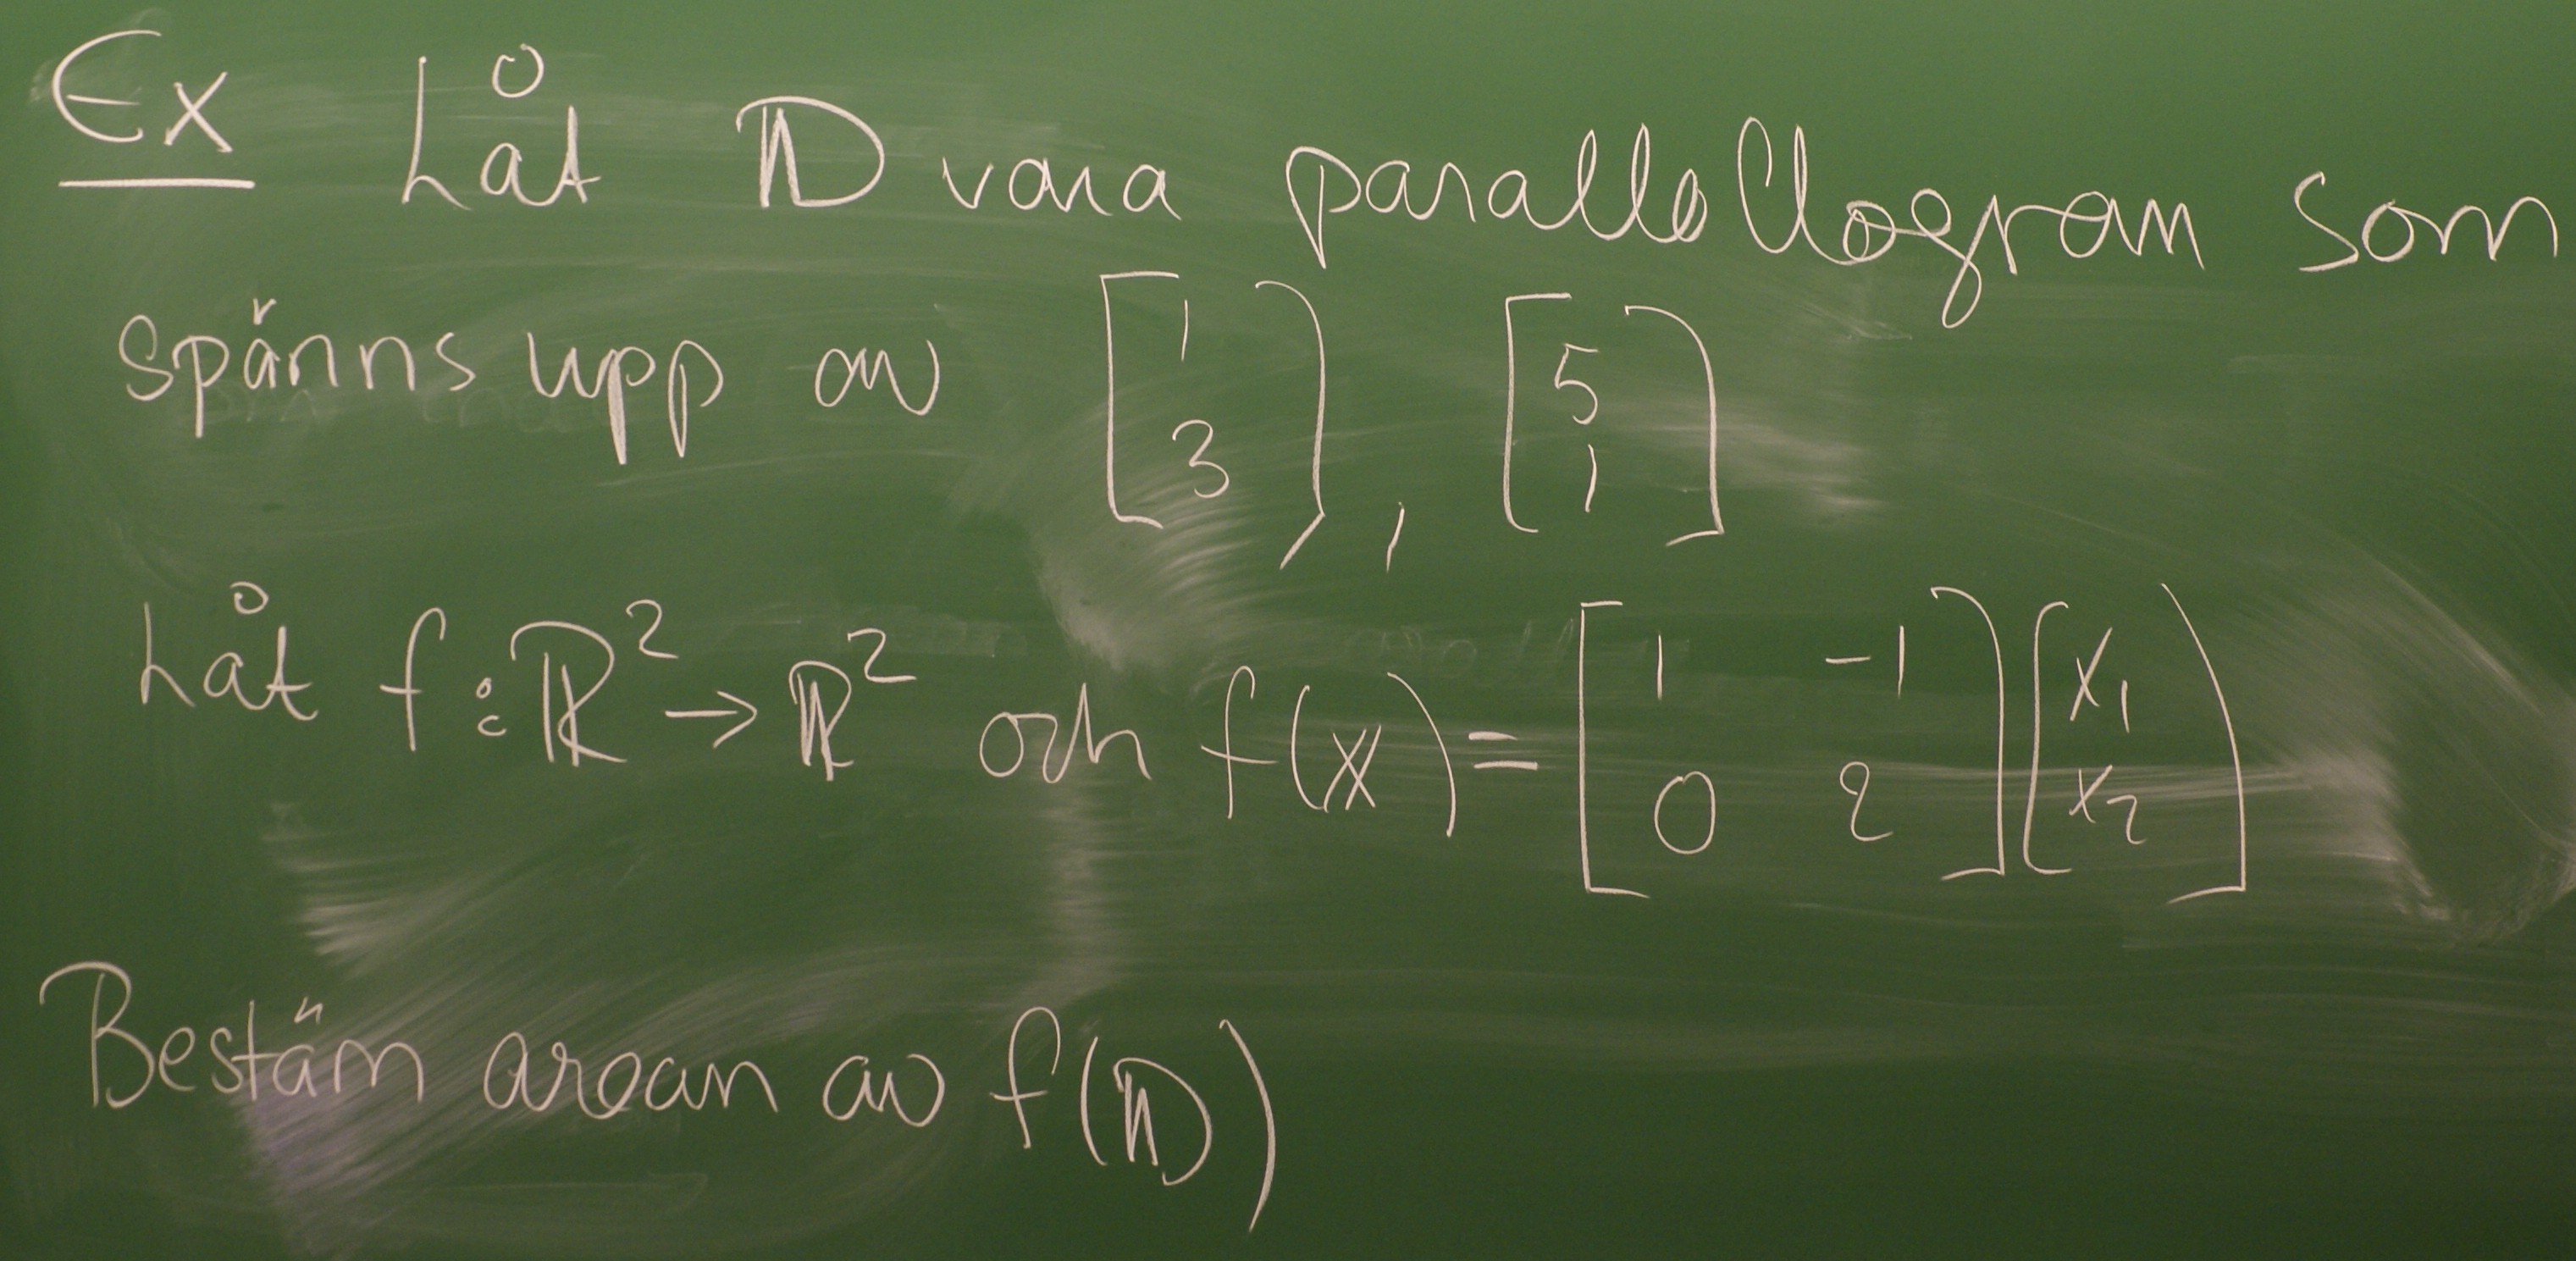 Ex Låt D vara parallellogram som
spänns upp av [1 3], [5 1]
Låt f: ℝ² → ℝ² och f(x) = [1 -1 0 2][x₁ x₂]
Bestäm arean av f(D)